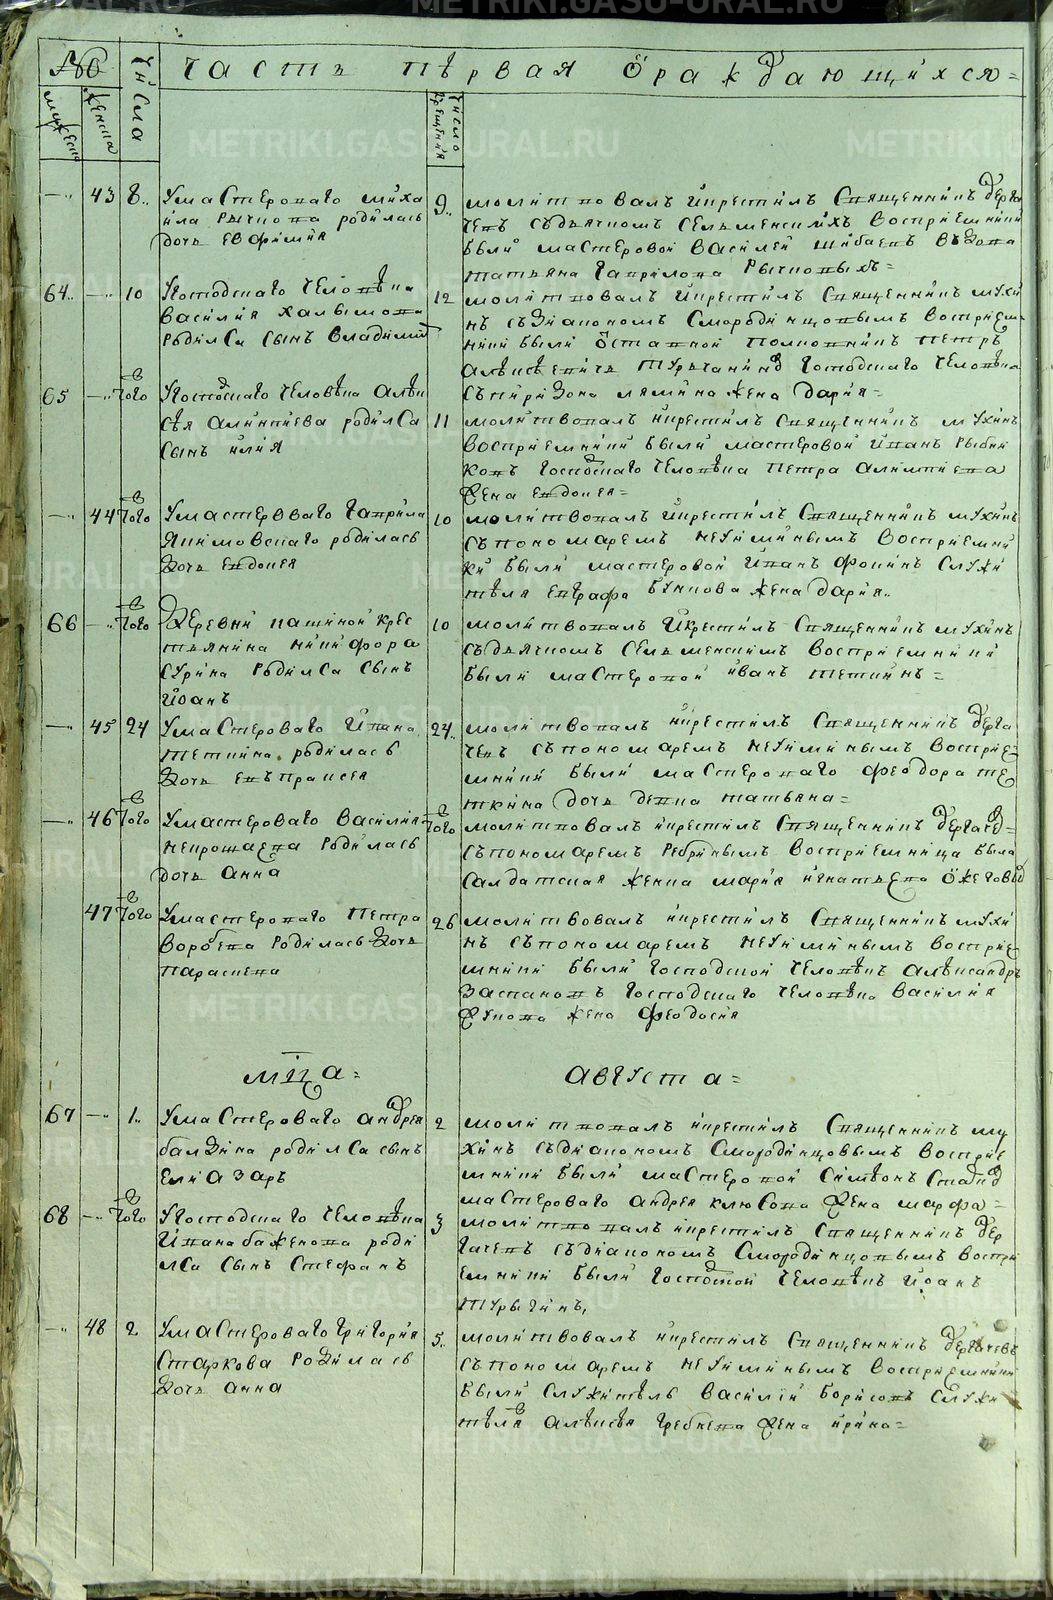 METRIKI.GASU-URAL.RU
№
числа
часть пѣрвая ӧраждающихся
мужеска
женска
число крещения
43 8 У мастероваго Миха
ила Рычкова родилась
дочь Евфимия
9 молитвовалъ и крестилъ священникъ Дерга
чевъ съ дьячкомъ Сельменскихъ восприемники
были мастеровой Василей Шибаевъ вдова
Татьяна Гаврилова Рычковыхъ
64 10 У господскаго человѣка
Василия Халымова
родился сынъ Владимиръ
12 молитвовалъ и крестилъ священникъ Мухи
нъ съ диакономъ Смородинцовымъ восприем
ники были Петръ
Алѣксѣевичь господскаго человѣка
жена Дария
65 того У господскаго человѣка Алѣк
сѣя Алимпиева родился
сынъ Илия
11 молитвовалъ и крестилъ священникъ Мухинъ
восприемники были мастеровой Иванъ Рыбни
ковъ господскаго человѣка Петра Алимпиева
жена Евдокея
44 того У мастероваго Гаврила
Якимовскаго родилась
дочь Евдокея
10 молитвовалъ и крестилъ священникъ Мухинъ
съ пономаремъ Неуйминымъ восприемни
ки были мастеровой Иванъ Фокинъ служи
тѣля Евграфа Бункова жена Дария
66 того Деревни Пашиной крес
тьянина Никифора
Сурина родился сынъ
Иоанъ
10 молитвовалъ и крестилъ священникъ Мухинъ
съ дьячкомъ Сельменскимъ восприемники
были мастеровой Иванъ Тетинъ
45 24 У мастероваго Ивана
Теткина родилась
дочь Евпраксея
24 молитвовалъ и крестилъ священникъ Дерга
чевъ съ пономаремъ Неуйминымъ восприе
мники были мастероваго Феодора Те
ткина дочь девка Татьяна
46 того У мастероваго Василия
Непрошаева родилась
дочь Анна
того молитвовалъ и крестилъ священникъ Дергачев
съ пономаремъ Ребринымъ восприемница была
салдатская женка Мария Игнатьева Ожеговых
47 того У мастероваго Петра
Воробева родилась дочь
Парасквева
26 молитвовалъ и крестилъ священникъ Мухи
нъ съ пономаремъ Неуйминымъ восприе
мники были господской человѣкъ Алѣксандръ
господскаго человѣка Василия
жена Феодосия
мца Августа
67 1 У мастероваго Андрея
Балдина родился сынъ
Елиазаръ
2 молитвовалъ и крестилъ священникъ Му
хинъ съ диакономъ Смородинцовымъ восприе
мники были мастеровой Симеонъ
мастероваго Андрея Клюсова жена Марфа
68 того У господскаго человѣка
Ивана Баженова роди
лся сынъ Стефанъ
3 молитвовалъ и крестилъ священникъ Дер
гачевъ съ диакономъ Смородинцовымъ воспри
емники были господской человѣкъ Иоанъ
Турыгинъ
48 2 У мастероваго Григория
Старкова родилась
дочь Анна
5 молитвовалъ и крестилъ священникъ Дергачевъ
съ пономаремъ Неуйминымъ восприемники
были служитѣль Василий Борисовъ служи
тѣля Алѣксѣя Гребнева жена Ирина